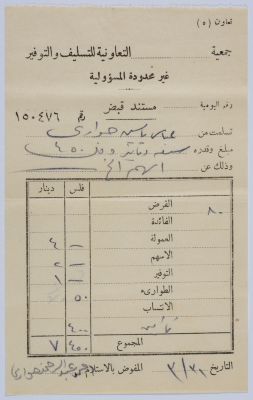 تعاون (٥)
جمعية التعاونية للتسليف والتوفير
غير محدودة المسؤولية
رقم اليومية مستند قبض رقم ١٥٠٤٧٦
تسلمت من هواري
مبلغ وقدره سبعة دنانير و ٤٥٠
وذلك عن اسهم الخ
فلس دينار
القرض ٨٠
الفائدة
العمولة — ٤
الاسهم — ٢
التوفير — ١
الطوارىء ٥٠
الانتساب
٤٠٠
المجموع ٤٥٠ ٧
التاريخ ٣/٣١ المفوض بالاستلام